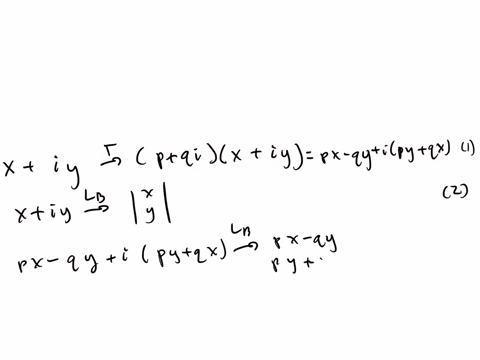 x + iy →T (p+qi)(x+iy) = px-qy+i(py+qx) (1)
x+iy →L_B |x y| (2)
px-qy+i(py+qx) →L_B px-qy
py+